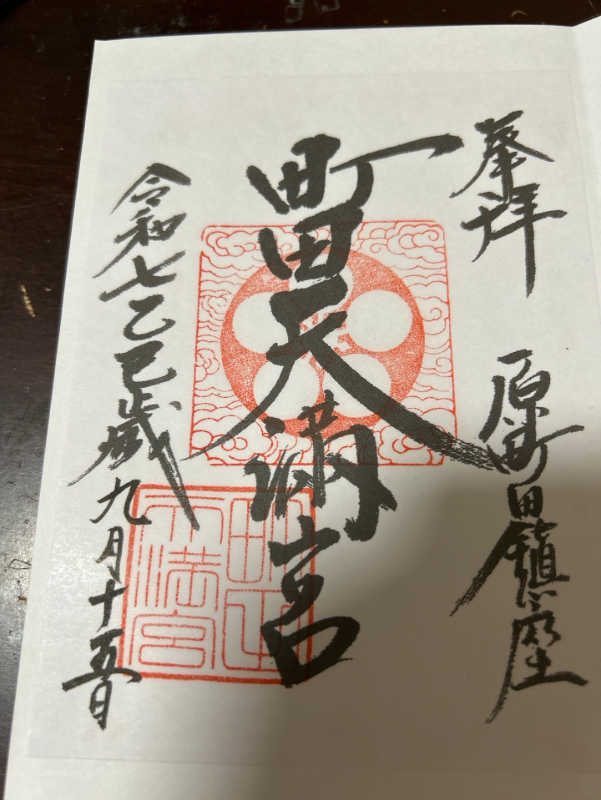 奉拝
原町田鎮座
町田天満宮
令和七乙巳歳九月十五日
町田天満宮